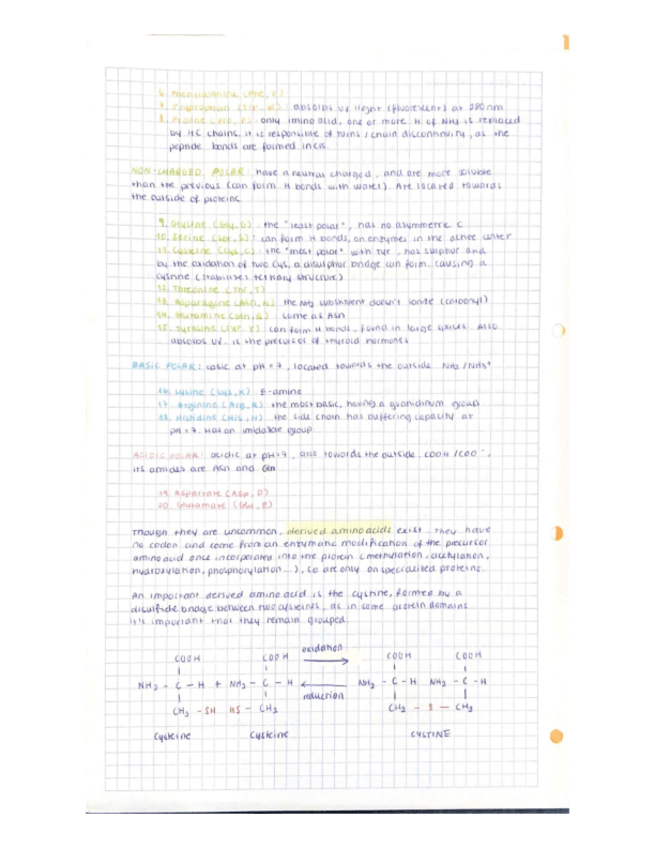 6. Phenylalanine (Phe, F)
7. Tryptophan (Trp, W): absorbs UV light (fluorescent) at 280 nm
8. Proline (Pro, P): only imino acid, one or more H of NH2 is replaced
by HC chains. it is responsible of turns / chain discontinuity, as the
peptide bonds are formed in cis.
NON-CHARGED POLAR: have a neutral charged, and are more soluble
than the previous (can form H bonds with water). Are located towards
the outside of proteins.
9. Glycine (Gly, G): the "least polar", has no asymmetric C
10. Serine (Ser, S): can form H bonds, on enzymes in the active center
11. Cysteine (Cys, C): the "most polar" with Tyr, has sulphur and
by the oxidation of two Cys, a disulphur bridge can form, causing a
cystine (stabilizes tertiary structure)
12. Threonine (Thr, T)
13. Asparagine (Asn, N): the NH2 substituent doesn't ionize (carbonyl)
14. Glutamine (Gln, Q): same as Asn
15. Tyrosine (Tyr, Y): can form H bonds, found in large Also
absorbs UV. is the precursor of thyroid hormones
BASIC POLAR: basic at pH = 7, located towards the outside. NH2 /NH3+
16. Lysine (Lys, K): E-amino
17. Arginine (Arg, R): the most basic, having a guanidinum group
18. Histidine (His, H): the side chain has buffering capacity at
pH = 7. Has an imidazole group
ACIDIC POLAR: acidic at pH=7, also towards the outside. COOH /COO-,
its amides are Asn and Gln
19. Aspartate (Asp, D)
20. Glutamate (Glu, E)
Though they are uncommon, derived amino acids exist. They have
no codon and come from an enzymatic modification of the precursor
amino acid once incorporated into the protein (methylation, acetylation,
hydroxylation, phosphorylation ...), so are only on specialized proteins.
An important derived amino acid is the cystine, formed by a
disulfide bridge between two cysteines, as in some protein domains
it's important that they remain grouped.
COOH COOH oxidation COOH COOH
NH2 - C - H + NH2 - C - H reduction NH2 - C - H NH2 - C - H
CH2 - SH HS - CH2 CH2 - S - CH2
Cysteine Cysteine CYSTINE